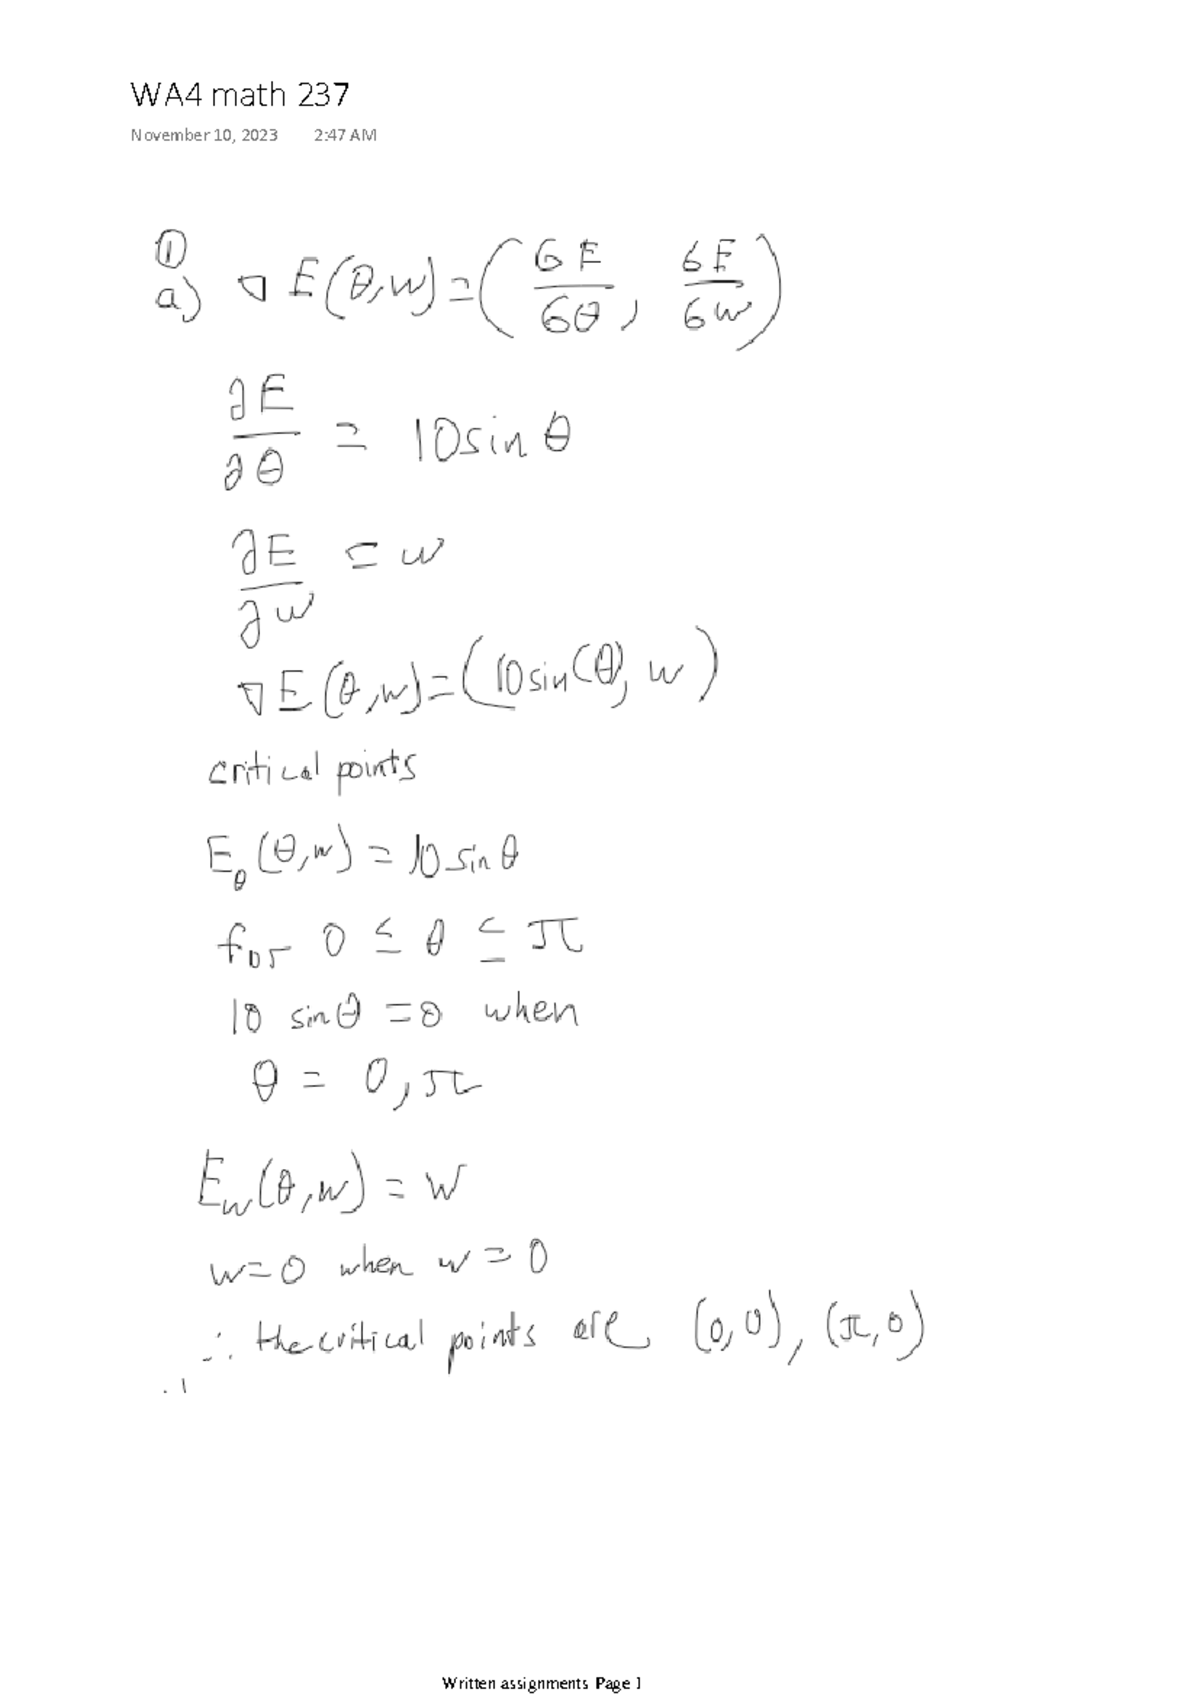 WA4 math 237
November 10, 2023 2:47 AM
①
a) ∇ E(θ,w) = (δE/δθ, δE/δw)
∂E/∂θ = 10sin θ
∂E/∂w = w
∇E(θ,w) = (10sin(θ), w)
critical points
E_θ(θ,w) = 10 sin θ
for 0 ≤ θ ≤ π
10 sinθ = 0 when
θ = 0, π
E_w(θ,w) = w
w = 0 when w = 0
∴ the critical points are (0,0), (π,0)
Written assignments Page 1